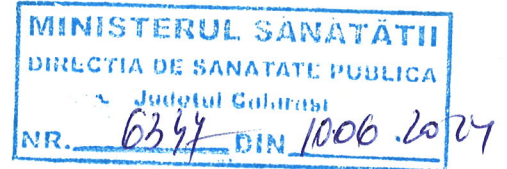 MINISTERUL SĂNĂTĂȚII
DIRECȚIA DE SANATATE PUBLICA
Județul Călărași
NR. 6347 DIN 10.06.2024